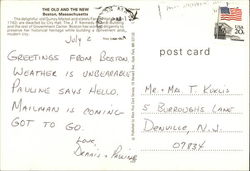 THE OLD AND THE NEW
Boston, Massachusetts
The delightful old Quincy Market and stately Faneuil Hall
1742) are dwarfed by City Hall, The J. F. Kennedy Building
and the rest of Government Center. Boston has worked to
preserve her historical heritage while building a convenient and
modern city.
July 2
GREETINGS FROM BOSTON
WEATHER IS UNBEARABLE
PAULINE SAYS HELLO.
MAILMAN IS COMING
GOT TO GO.
LOVE,
DENNIS + PAULINE
post card
USA
20c
MR. + MRS. T KUKLIS
5 BURROUGHS LANE
DENVILLE, N.J.
07834